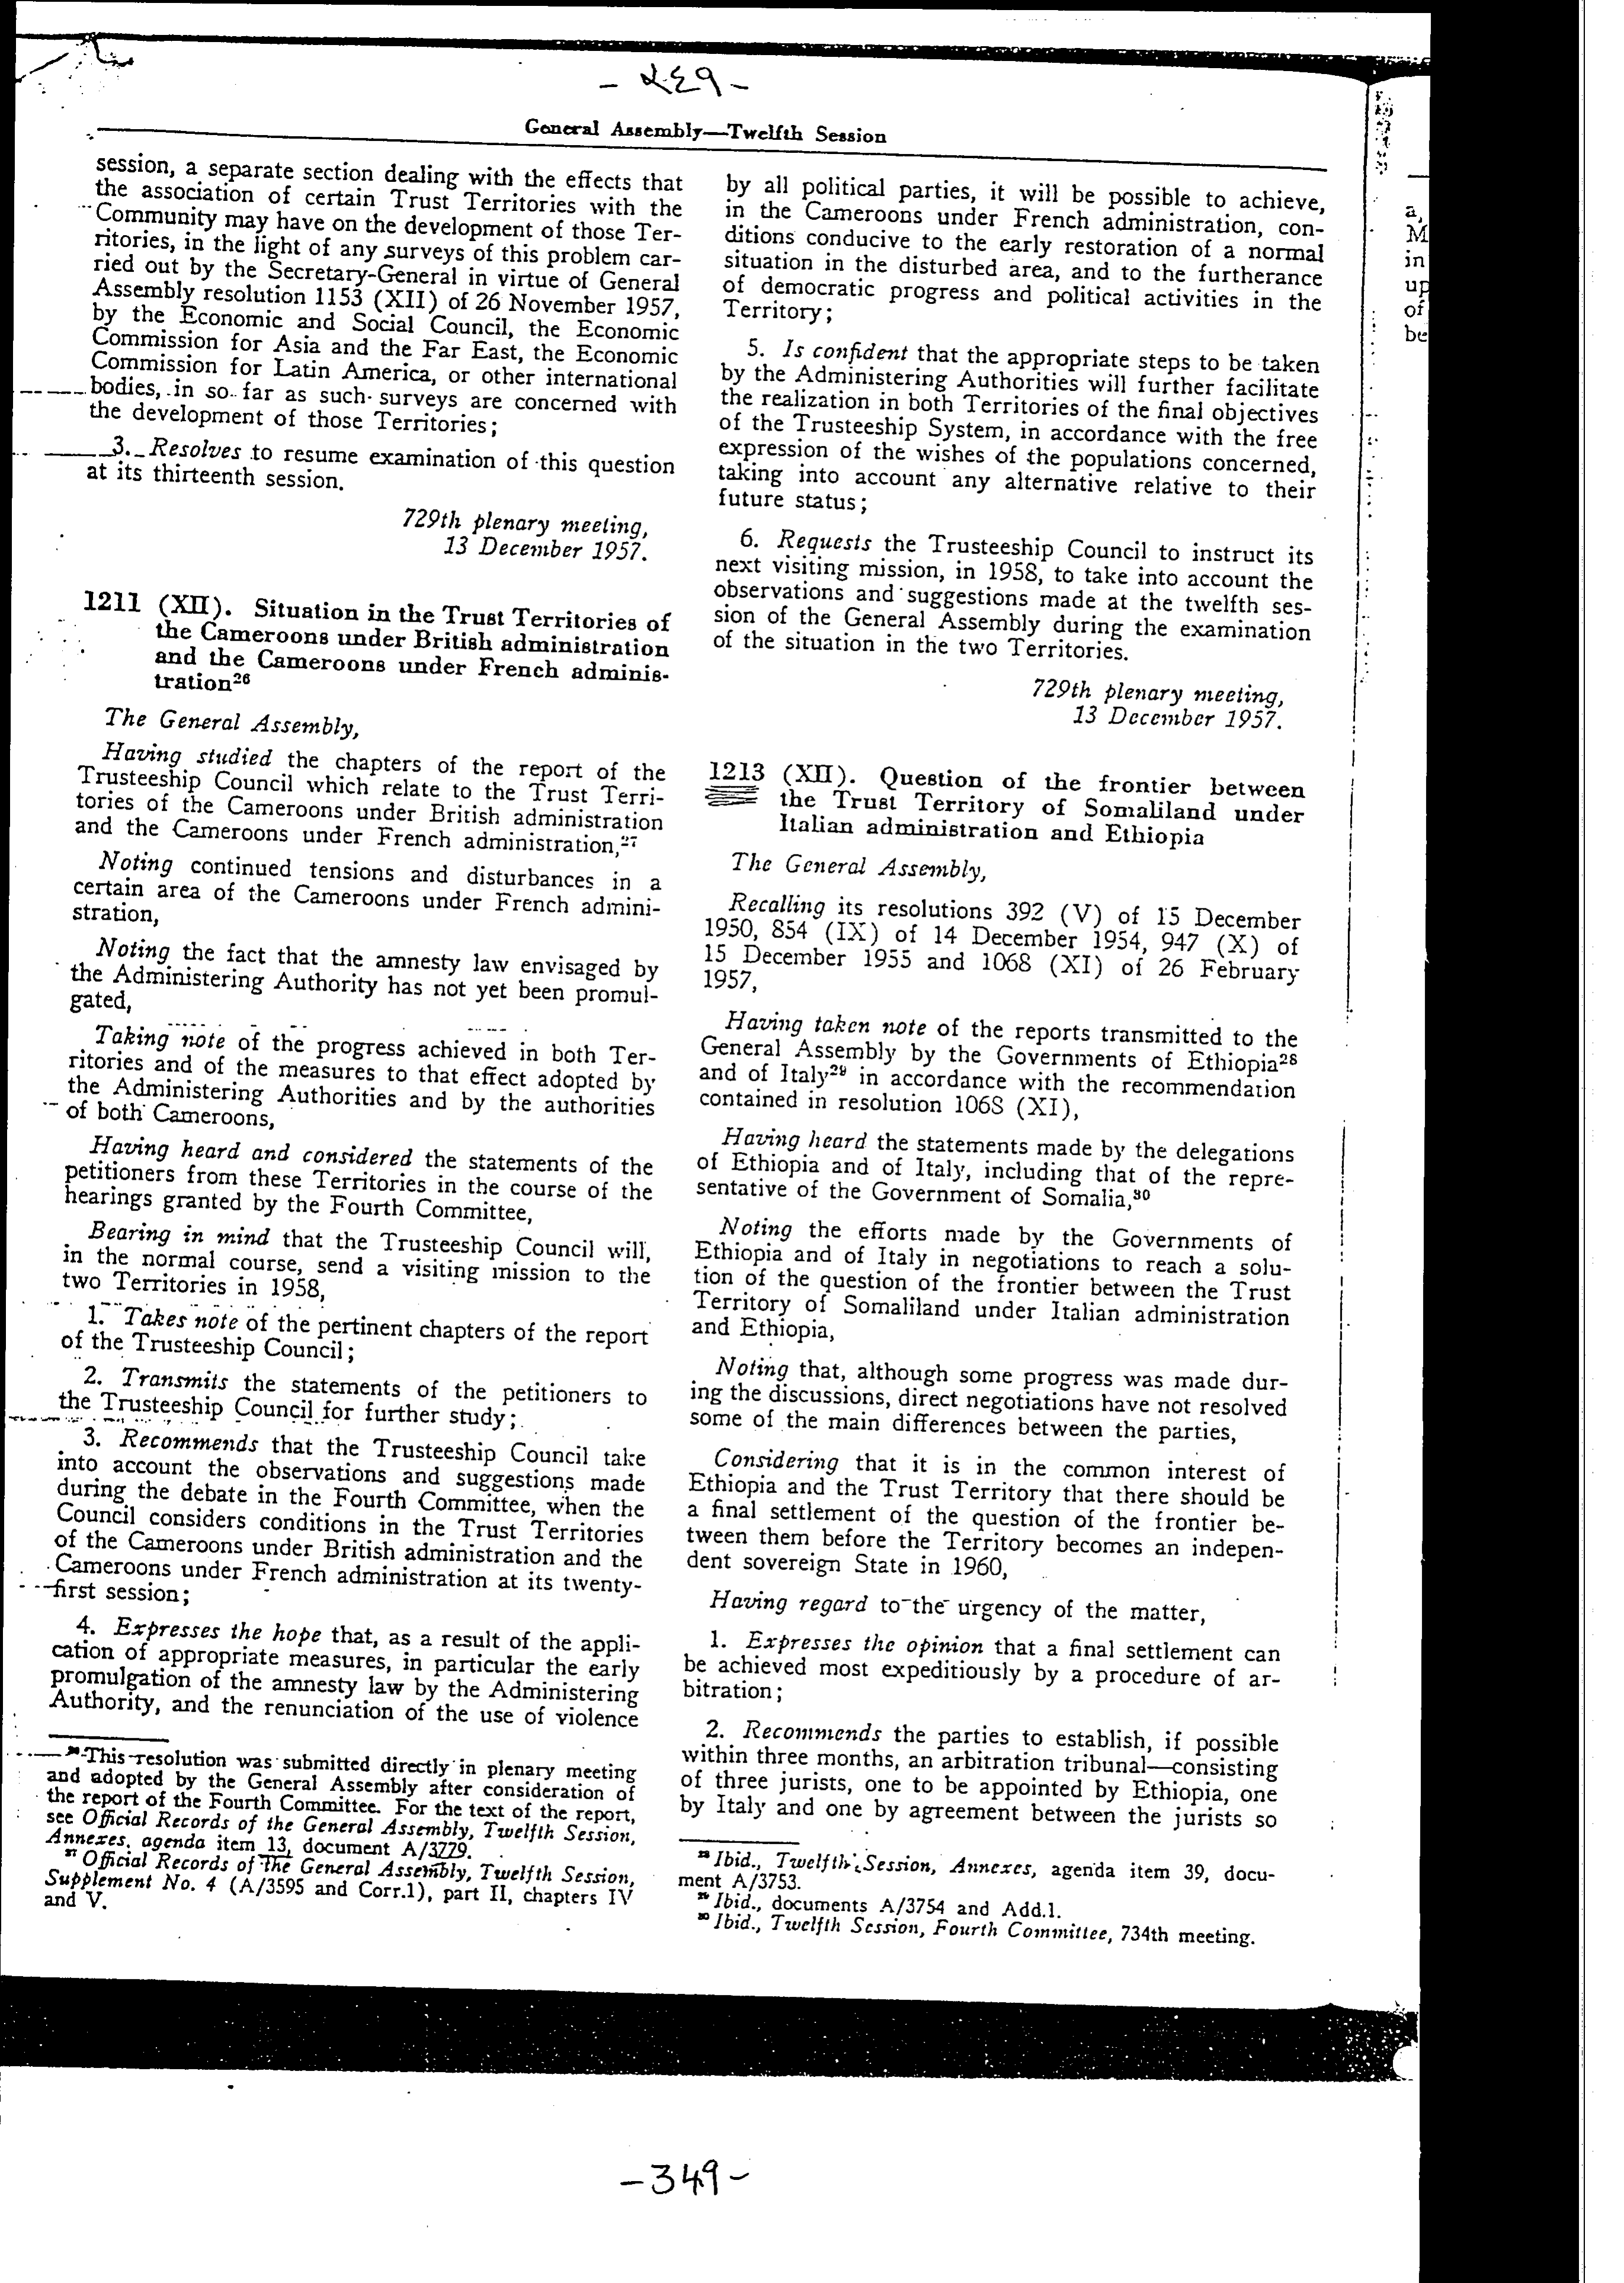 General Assembly—Twelfth Session
session, a separate section dealing with the effects that
the association of certain Trust Territories with the
Community may have on the development of those Ter-
ritories, in the light of any surveys of this problem car-
ried out by the Secretary-General in virtue of General
Assembly resolution 1153 (XII) of 26 November 1957,
by the Economic and Social Council, the Economic
Commission for Asia and the Far East, the Economic
Commission for Latin America, or other international
bodies, in so far as such surveys are concerned with
the development of those Territories;
3. Resolves to resume examination of this question
at its thirteenth session.
729th plenary meeting,
13 December 1957.
1211 (XII). Situation in the Trust Territories of
the Cameroons under British administration
and the Cameroons under French adminis-
tration26
The General Assembly,
Having studied the chapters of the report of the
Trusteeship Council which relate to the Trust Terri-
tories of the Cameroons under British administration
and the Cameroons under French administration,27
Noting continued tensions and disturbances in a
certain area of the Cameroons under French admini-
stration,
Noting the fact that the amnesty law envisaged by
the Administering Authority has not yet been promul-
gated,
Taking note of the progress achieved in both Ter-
ritories and of the measures to that effect adopted by
the Administering Authorities and by the authorities
of both Cameroons,
Having heard and considered the statements of the
petitioners from these Territories in the course of the
hearings granted by the Fourth Committee,
Bearing in mind that the Trusteeship Council will,
in the normal course, send a visiting mission to the
two Territories in 1958,
1. Takes note of the pertinent chapters of the report
of the Trusteeship Council;
2. Transmits the statements of the petitioners to
the Trusteeship Council for further study;
3. Recommends that the Trusteeship Council take
into account the observations and suggestions made
during the debate in the Fourth Committee, when the
Council considers conditions in the Trust Territories
of the Cameroons under British administration and the
Cameroons under French administration at its twenty-
first session;
4. Expresses the hope that, as a result of the appli-
cation of appropriate measures, in particular the early
promulgation of the amnesty law by the Administering
Authority, and the renunciation of the use of violence
26 This resolution was submitted directly in plenary meeting
and adopted by the General Assembly after consideration of
the report of the Fourth Committee. For the text of the report,
see Official Records of the General Assembly, Twelfth Session,
Annexes, agenda item 13, document A/3779.
27 Official Records of the General Assembly, Twelfth Session,
Supplement No. 4 (A/3595 and Corr.1), part II, chapters IV
and V.
by all political parties, it will be possible to achieve,
in the Cameroons under French administration, con-
ditions conducive to the early restoration of a normal
situation in the disturbed area, and to the furtherance
of democratic progress and political activities in the
Territory;
5. Is confident that the appropriate steps to be taken
by the Administering Authorities will further facilitate
the realization in both Territories of the final objectives
of the Trusteeship System, in accordance with the free
expression of the wishes of the populations concerned,
taking into account any alternative relative to their
future status;
6. Requests the Trusteeship Council to instruct its
next visiting mission, in 1958, to take into account the
observations and suggestions made at the twelfth ses-
sion of the General Assembly during the examination
of the situation in the two Territories.
729th plenary meeting,
13 December 1957.
1213 (XII). Question of the frontier between
the Trust Territory of Somaliland under
Italian administration and Ethiopia
The General Assembly,
Recalling its resolutions 392 (V) of 15 December
1950, 854 (IX) of 14 December 1954, 947 (X) of
15 December 1955 and 1068 (XI) of 26 February
1957,
Having taken note of the reports transmitted to the
General Assembly by the Governments of Ethiopia28
and of Italy29 in accordance with the recommendation
contained in resolution 1068 (XI),
Having heard the statements made by the delegations
of Ethiopia and of Italy, including that of the repre-
sentative of the Government of Somalia,30
Noting the efforts made by the Governments of
Ethiopia and of Italy in negotiations to reach a solu-
tion of the question of the frontier between the Trust
Territory of Somaliland under Italian administration
and Ethiopia,
Noting that, although some progress was made dur-
ing the discussions, direct negotiations have not resolved
some of the main differences between the parties,
Considering that it is in the common interest of
Ethiopia and the Trust Territory that there should be
a final settlement of the question of the frontier be-
tween them before the Territory becomes an indepen-
dent sovereign State in 1960,
Having regard to the urgency of the matter,
1. Expresses the opinion that a final settlement can
be achieved most expeditiously by a procedure of ar-
bitration;
2. Recommends the parties to establish, if possible
within three months, an arbitration tribunal—consisting
of three jurists, one to be appointed by Ethiopia, one
by Italy and one by agreement between the jurists so
28 Ibid., Twelfth Session, Annexes, agenda item 39, docu-
ment A/3753.
29 Ibid., documents A/3754 and Add.1.
30 Ibid., Twelfth Session, Fourth Committee, 734th meeting.
a,
M
in
up
of
be
-349-